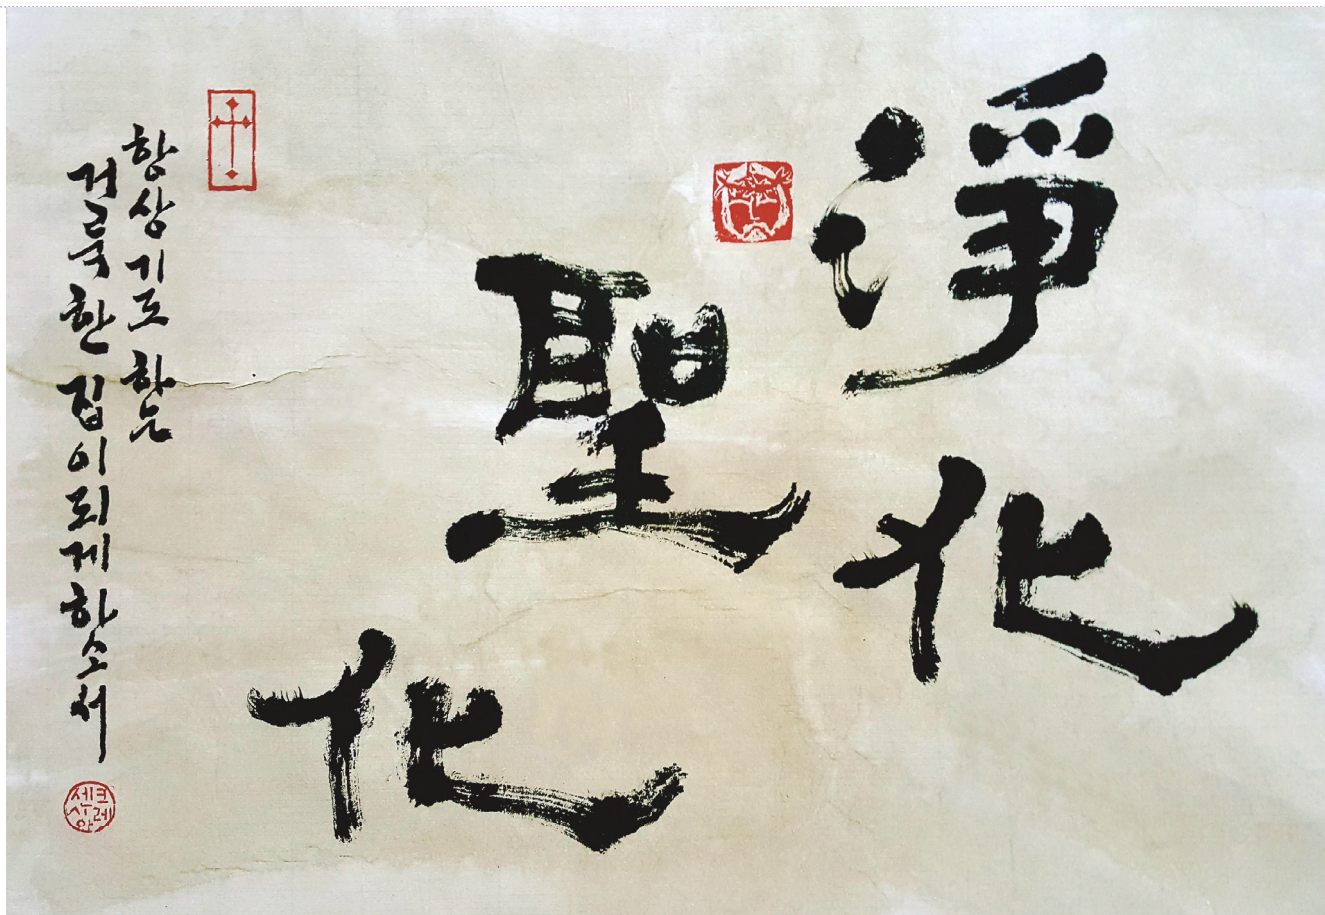 淨化
聖化
항상기도하는
거룩한 집이되게하소서